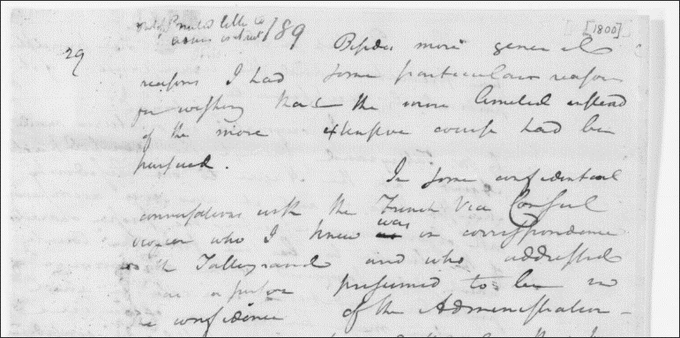 189
[1800]
29
Besides more general
reasons I had some particular reasons
for wishing that the more limited instead
of the more extensive course had been
pursued.
In some confidential
conversations with the French Vice Consul
who I knew was in correspondence
with Talleyrand and who addressed
presumed to be in
the confidence of the Administration